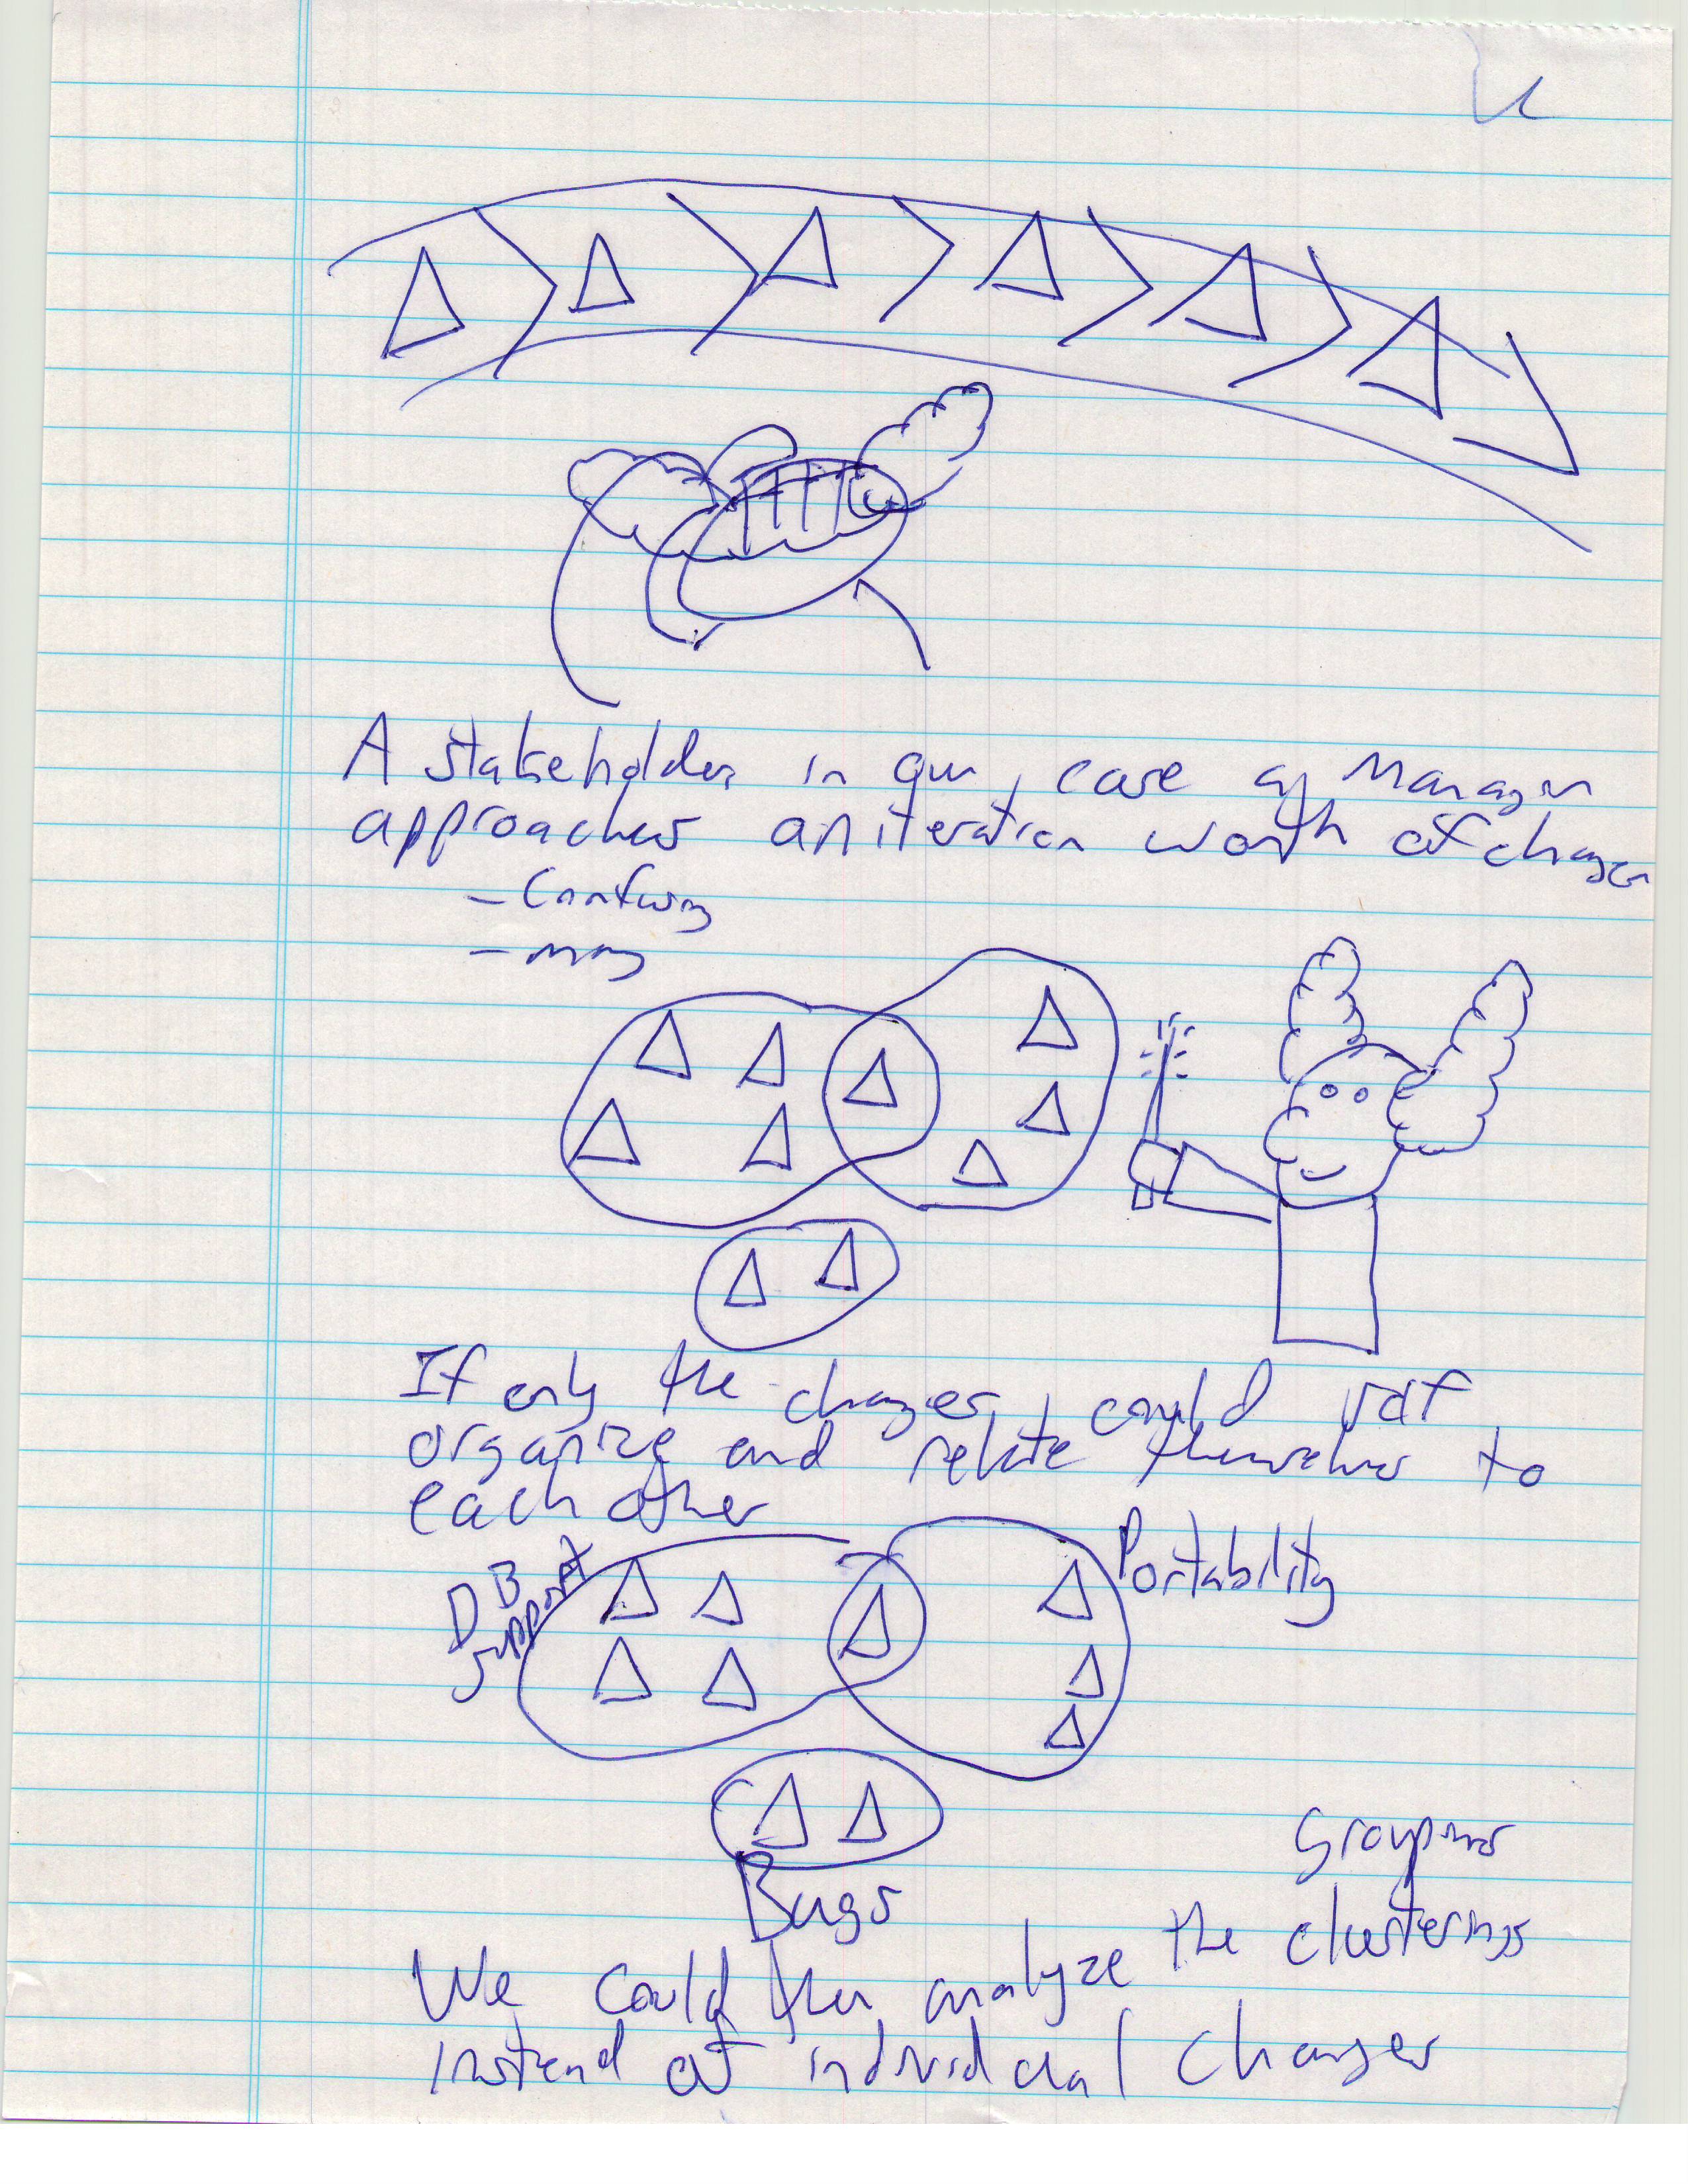 A stakeholder, in our case a manager
approaches an iteration worth of changes
- Confusing
- many
If only the changes could self
organize and relate themselves to
each other
DB
support
Portability
Bugs
Groupings
We could then analyze the clusterings
instead of individual changes